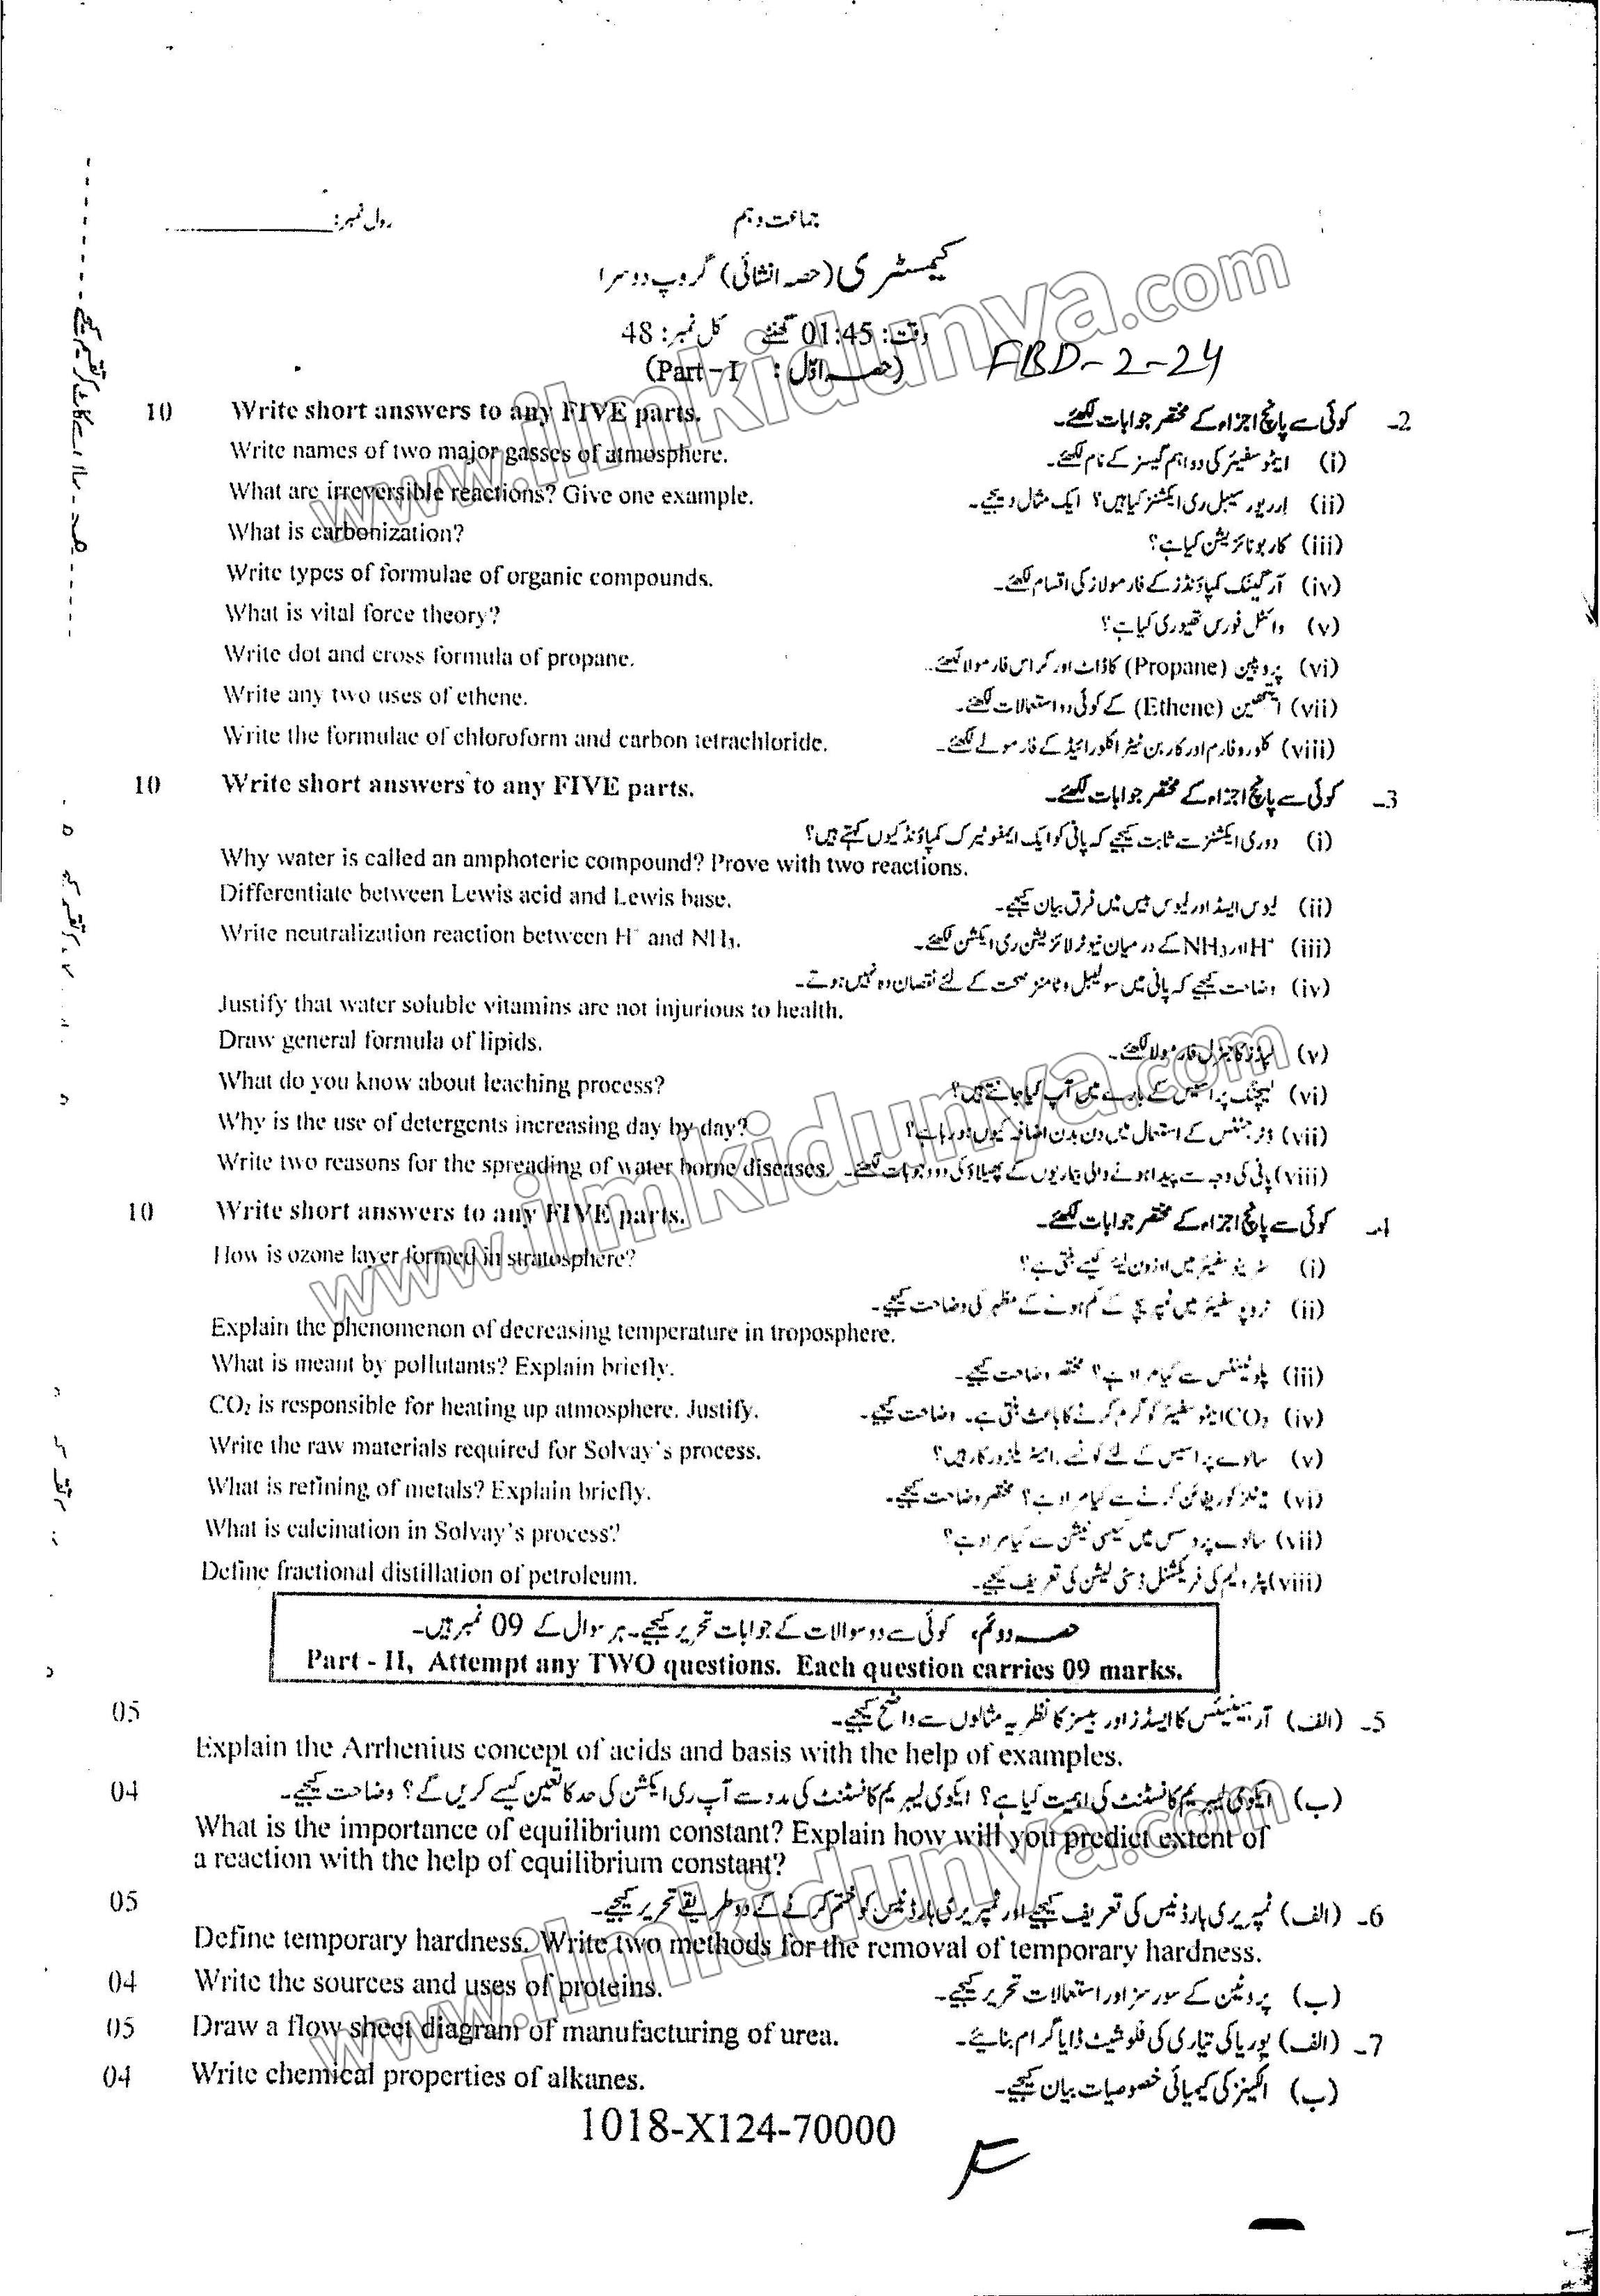 جماعت دہم
رول نمبر:
کیمسٹری (حصہ انشائی) گروپ دوسرا
وقت: 01:45 گھنٹے کل نمبر: 48
(حصہ اوّل: Part – I)
FBD-2-24
2- کوئی سے پانچ اجزاء کے مختصر جوابات لکھئے۔ Write short answers to any FIVE parts. 10
(i) ایٹموسفیئر کی دو اہم گیسز کے نام لکھئے۔ Write names of two major gasses of atmosphere.
(ii) اررپورسیبل ری ایکشنز کیا ہیں؟ ایک مثال دیجیے۔ What are irreversible reactions? Give one example.
(iii) کاربونائزیشن کیا ہے؟ What is carbonization?
(iv) آرگینک کمپاؤنڈز کے فارمولاز کی اقسام لکھئے۔ Write types of formulae of organic compounds.
(v) وائٹل فورس تھیوری کیا ہے؟ What is vital force theory?
(vi) پروپین (Propane) کا ڈاٹ اور کراس فارمولا لکھئے۔ Write dot and cross formula of propane.
(vii) ایتھین (Ethene) کے کوئی دو استعمالات لکھئے۔ Write any two uses of ethene.
(viii) کلوروفارم اور کاربن ٹیٹراکلورائیڈ کے فارمولے لکھئے۔ Write the formulae of chloroform and carbon tetrachloride.
3- کوئی سے پانچ اجزاء کے مختصر جوابات لکھئے۔ Write short answers to any FIVE parts. 10
(i) دو ری ایکشنز سے ثابت کیجیے کہ پانی کو ایک ایمفوٹیرک کمپاؤنڈ کیوں کہتے ہیں؟
Why water is called an amphoteric compound? Prove with two reactions.
(ii) لیوس ایسڈ اور لیوس بیس میں فرق بیان کیجیے۔ Differentiate between Lewis acid and Lewis base.
(iii) H⁺ اور NH₃ کے درمیان نیوٹرلائزیشن ری ایکشن لکھئے۔ Write neutralization reaction between H⁺ and NH₃.
(iv) وضاحت کیجیے کہ پانی میں سولیبل وٹامنز صحت کے لئے نقصان دہ نہیں ہوتے۔
Justify that water soluble vitamins are not injurious to health.
(v) لپڈز کا جنرل فارمولا لکھئے۔ Draw general formula of lipids.
(vi) لیچنگ پراسیس کے بارے میں آپ کیا جانتے ہیں؟ What do you know about leaching process?
(vii) ڈٹرجنٹس کے استعمال میں دن بدن اضافہ کیوں ہو رہا ہے؟ Why is the use of detergents increasing day by day?
(viii) پانی کی وجہ سے پیدا ہونے والی بیماریوں کے پھیلاؤ کی دو وجوہات لکھئے۔ Write two reasons for the spreading of water borne diseases.
4- کوئی سے پانچ اجزاء کے مختصر جوابات لکھئے۔ Write short answers to any FIVE parts. 10
(i) سٹریٹوسفیئر میں اوزون لیئر کیسے بنتی ہے؟ How is ozone layer formed in stratosphere?
(ii) ٹروپوسفیئر میں ٹمپریچر کے کم ہونے کے مظہر کی وضاحت کیجیے۔
Explain the phenomenon of decreasing temperature in troposphere.
(iii) پلوٹینٹس سے کیا مراد ہے؟ مختصر وضاحت کیجیے۔ What is meant by pollutants? Explain briefly.
(iv) CO₂ ایٹموسفیئر کو گرم کرنے کا باعث بنتی ہے۔ وضاحت کیجیے۔ CO₂ is responsible for heating up atmosphere. Justify.
(v) سالوے پراسیس کے لئے کونسے را میٹریلز درکار ہیں؟ Write the raw materials required for Solvay's process.
(vi) میٹلز کو ریفائن کرنے سے کیا مراد ہے؟ مختصر وضاحت کیجیے۔ What is refining of metals? Explain briefly.
(vii) سالوے پروسس میں کیلسی نیشن سے کیا مراد ہے؟ What is calcination in Solvay's process?
(viii) پٹرولیم کی فریکشنل ڈسٹی لیشن کی تعریف کیجیے۔ Define fractional distillation of petroleum.
حصہ دوئم، کوئی سے دو سوالات کے جوابات تحریر کیجیے۔ ہر سوال کے 09 نمبر ہیں۔
Part - II, Attempt any TWO questions. Each question carries 09 marks.
5- (الف) آرہینئیس کا ایسڈز اور بیسز کا نظریہ مثالوں سے واضح کیجیے۔ 05
Explain the Arrhenius concept of acids and basis with the help of examples.
(ب) ایکوی لبریم کانسٹنٹ کی اہمیت کیا ہے؟ ایکوی لبریم کانسٹنٹ کی مدد سے آپ ری ایکشن کی حد کا تعین کیسے کریں گے؟ وضاحت کیجیے۔ 04
What is the importance of equilibrium constant? Explain how will you predict extent of
a reaction with the help of equilibrium constant?
6- (الف) ٹمپریری ہارڈنیس کی تعریف کیجیے اور ٹمپریری ہارڈنیس کو ختم کرنے کے دو طریقے تحریر کیجیے۔ 05
Define temporary hardness. Write two methods for the removal of temporary hardness.
(ب) پروٹین کے سورسز اور استعمالات تحریر کیجیے۔ Write the sources and uses of proteins. 04
7- (الف) یوریا کی تیاری کی فلو شیٹ ڈایاگرام بنائیے۔ Draw a flow sheet diagram of manufacturing of urea. 05
(ب) الکینز کی کیمیائی خصوصیات بیان کیجیے۔ Write chemical properties of alkanes. 04
1018-X124-70000
www.ilmkidunya.com
www.ilmkidunya.com
www.ilmkidunya.com